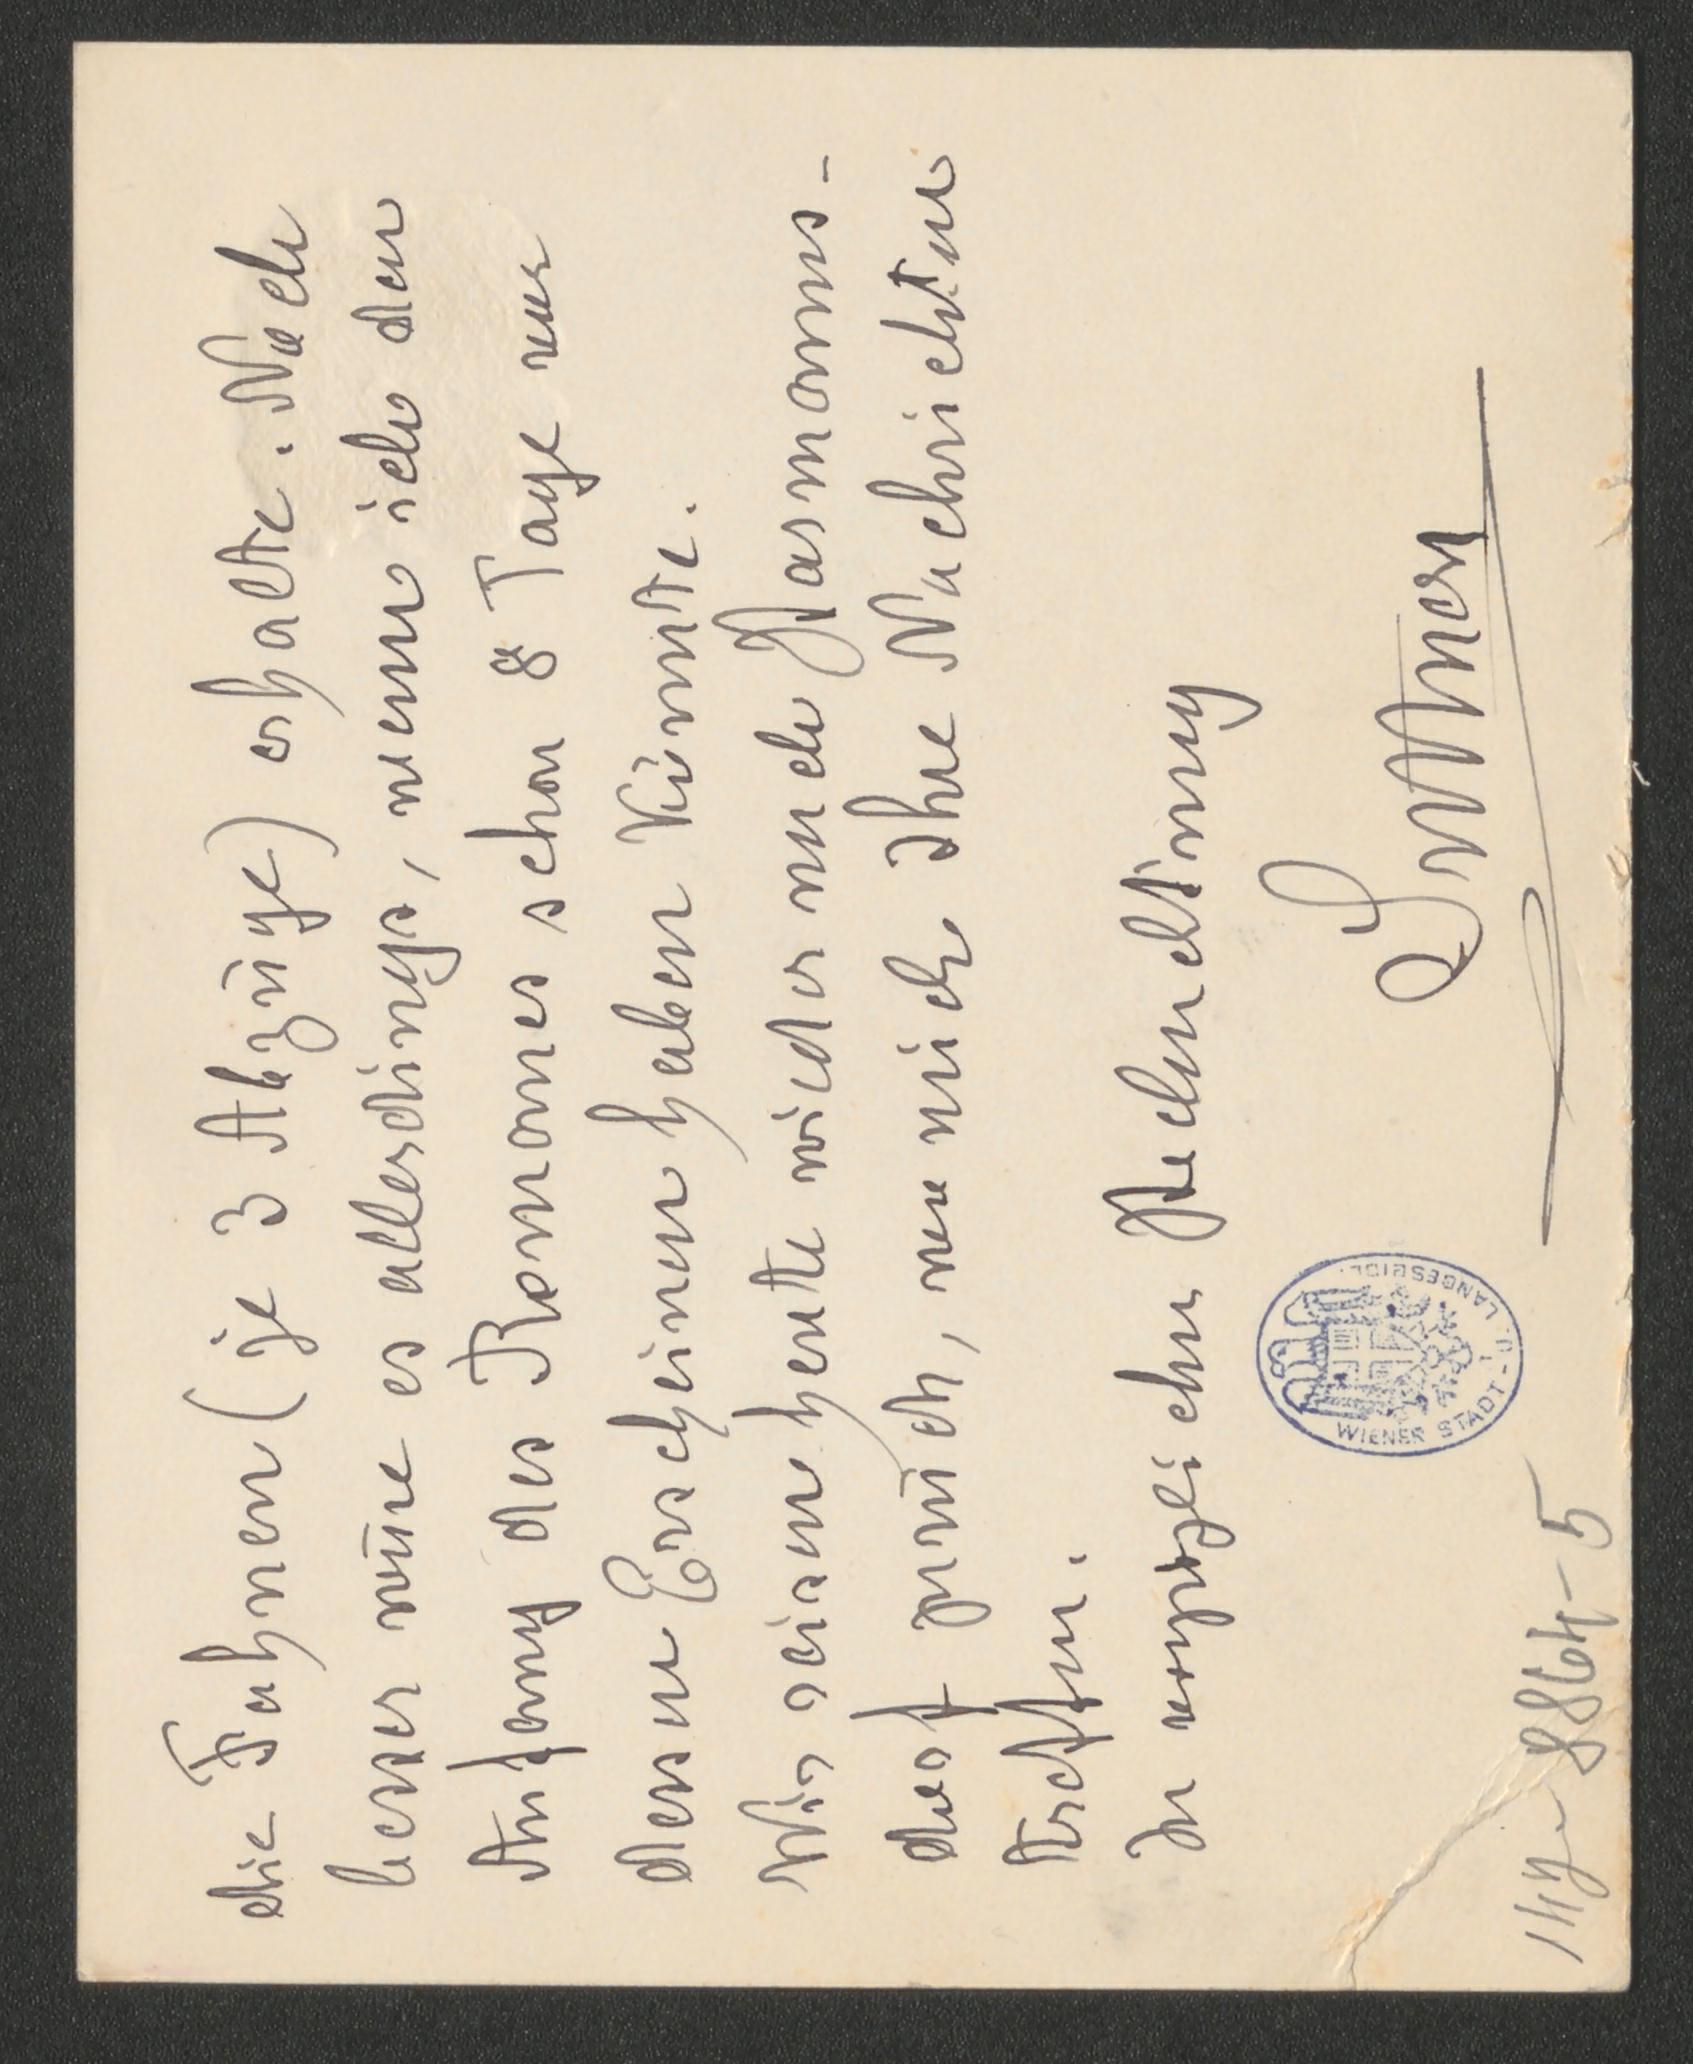 die Fahnen (je 3 Abzüge) erhalte. Noch
besser wäre es allerdings, wenn ich den
Anfang des Romanes schon 8 Tage vor
dessen Erscheinen haben könnte.
Wir reisen heute wieder nach
dorf zurück, wo mich Ihre Nachrichten
treffen.
In vorzüglicher Hochachtung
WIENER STADT- U. LANDESBIBL.